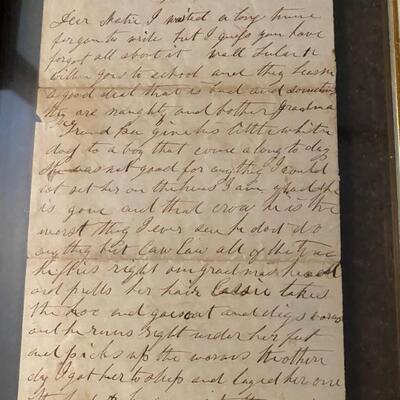 Dear Matie I waited a long time
for you to write but I guess you have
forgot all about it Well Lula &
Willie goes to school and they learn
a good deal that is bad and sometimes
they are naughty and bother Grandma
Grand Pa give his little white
dog to a boy that come along to day
He was not good for anything I could
not set her on the hens I am glad she
is gone and that crow he is the
worst thing I ever seen he dont do
anything but Caw Caw all of the time
he flies right on grandmas head
and pulls her hair Cassie takes
the hoe and goes out and digs worms
and he runs right under her feet
and picks up the worms the other
day I got her to sleep and layed her one